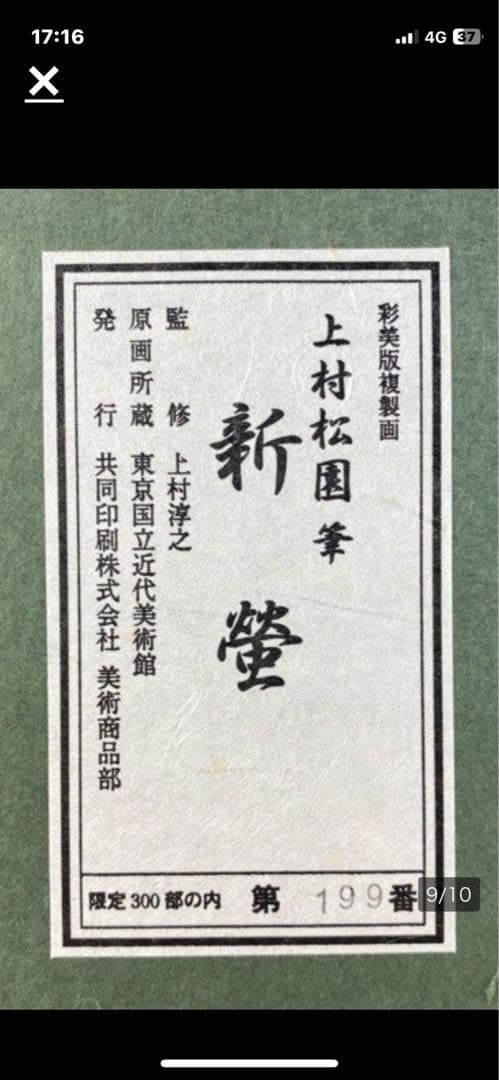 17:16
4G
37
彩美版複製画
上村松園筆
新螢
監修 上村淳之
原画所蔵 東京国立近代美術館
発行 共同印刷株式会社 美術商品部
限定300部の内 第 199番
9/10